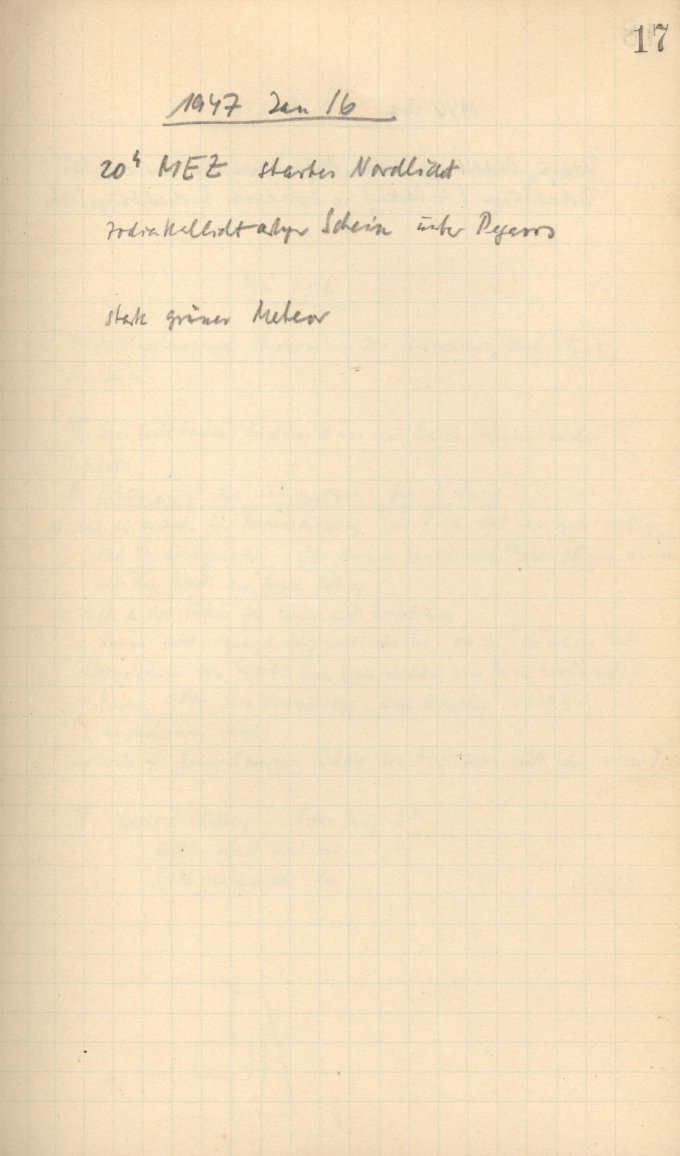 17
1947 Jan 16
20h MEZ starkes Nordlicht
zodiakallichtartiger Schein über Pegasus
stark grüner Meteor